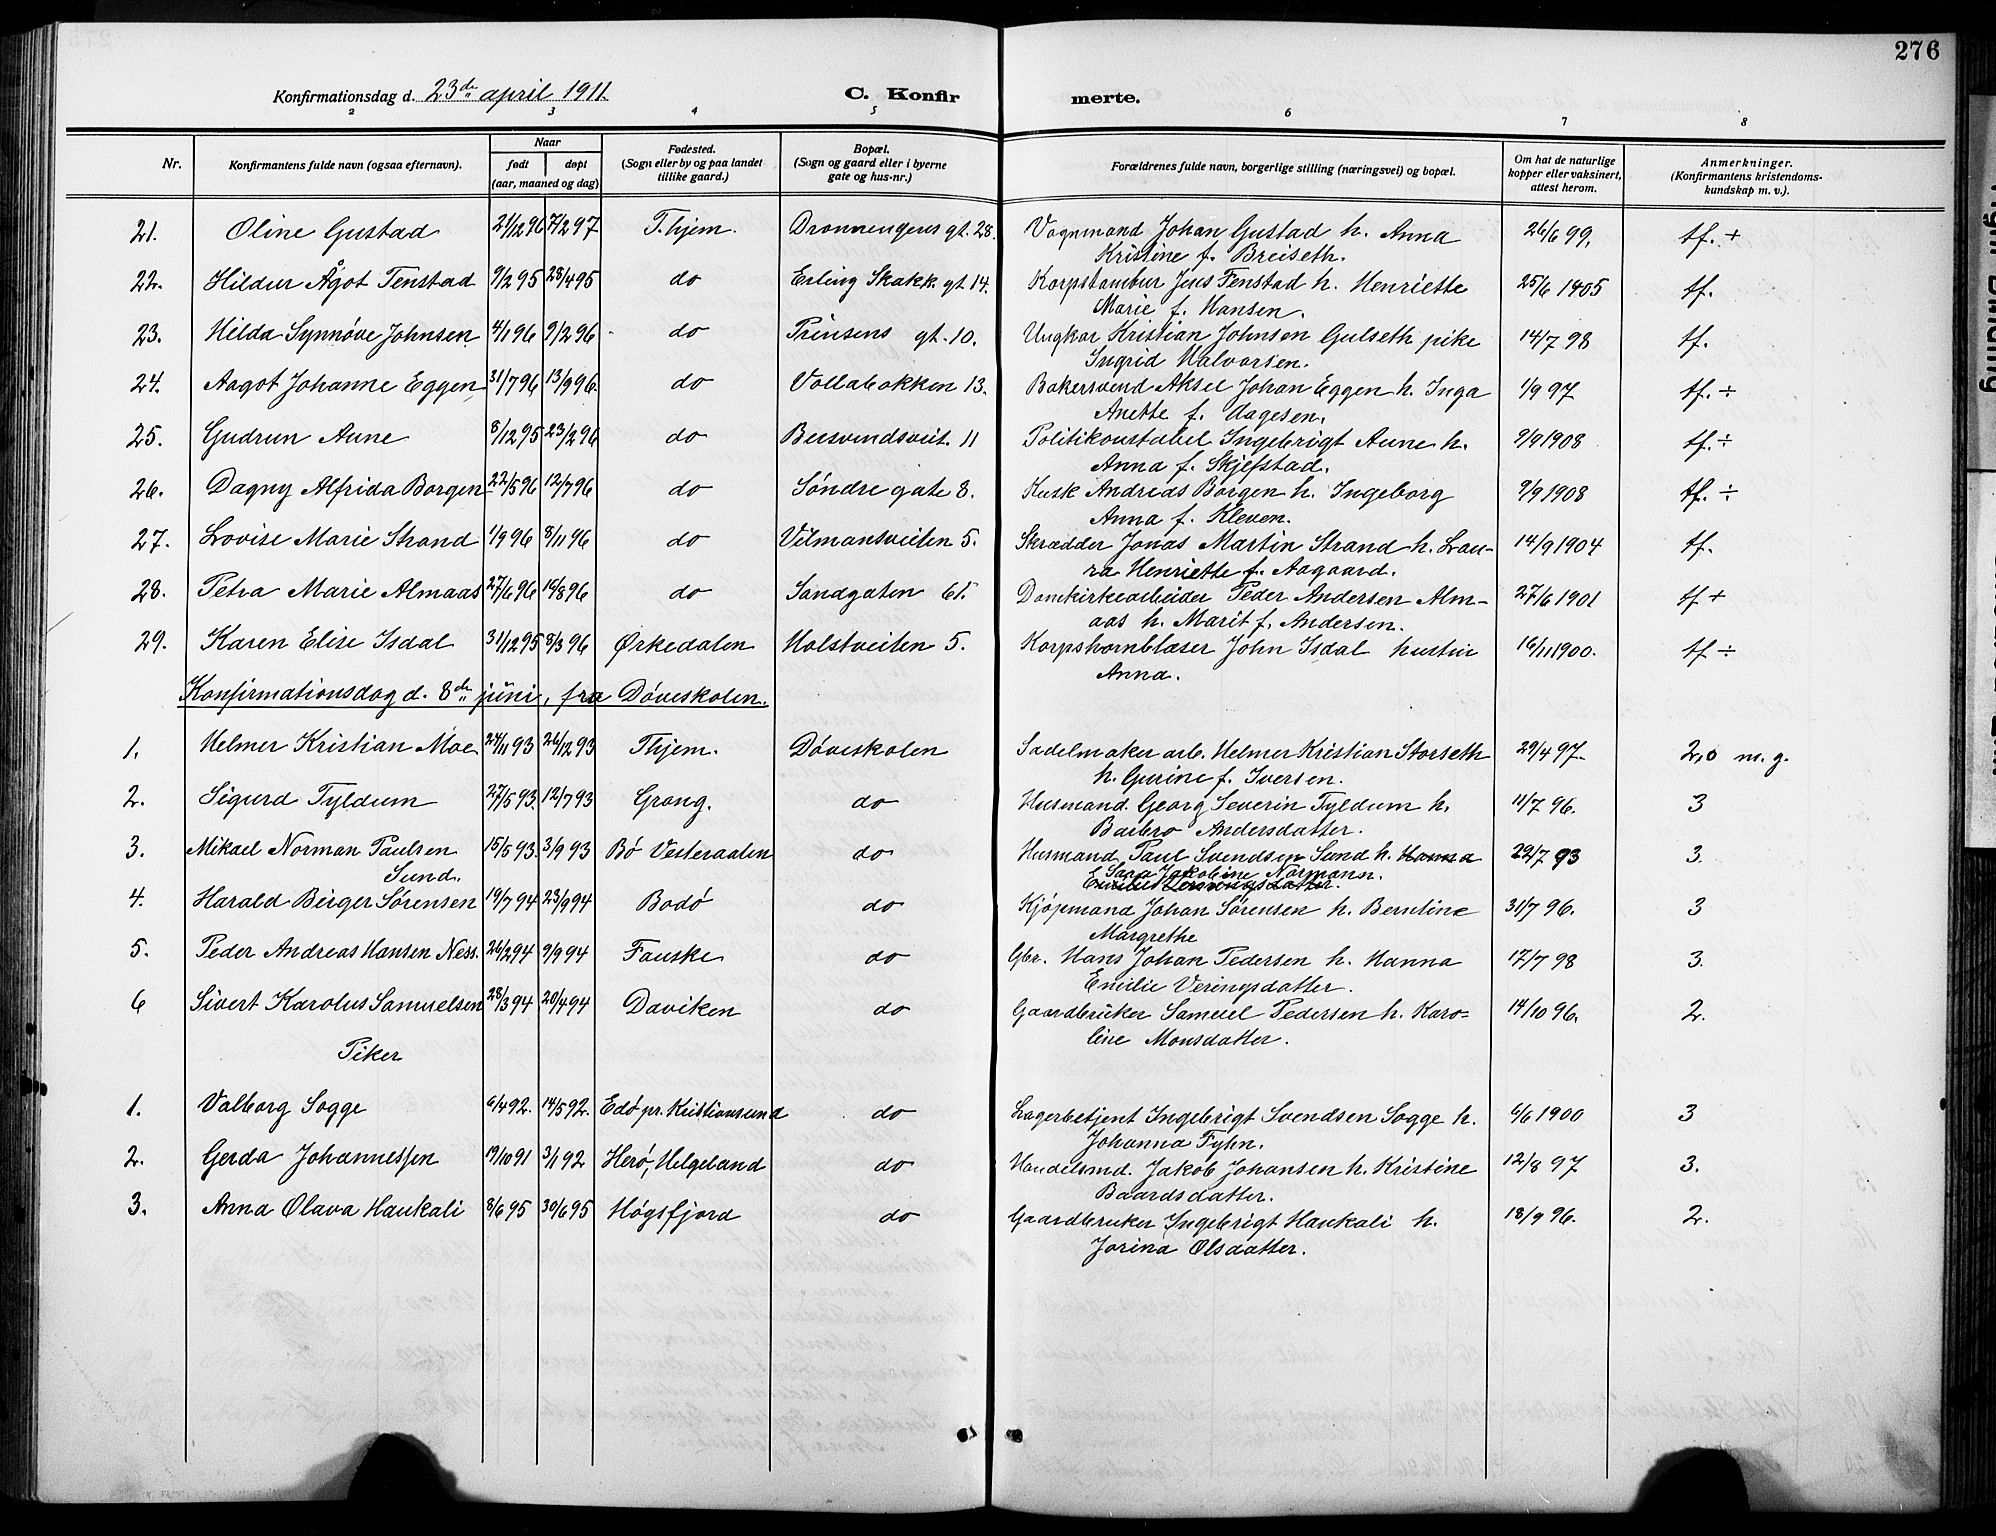 276
Konfirmationsdag d. 23de april 1911. C. Konfir merte.
2 3 4 5 6 7 8
Nr. Konfirmantens fulde navn (ogsaa efternavn). Naar født døpt (aar, maaned og dag) Fødested. (Sogn eller by og paa landet tillike gaard.) Bopæl. (Sogn og gaard eller i byerne gate og hus-nr.) Forældrenes fulde navn, borgerlige stilling (næringsvei) og bopæl. Om hat de naturlige kopper eller vaksinert, attest herom. Anmerkninger. (Konfirmantens kristendoms-kundskap m. v.).
21. Oline Gustad 21/12 96 7/2 97 T.hjem. Dronningens gt. 28. Vognmand Johan Gustad h. Anna 26/6 99. tf. +
Kristine f. Breiseth.
22. Hildur Ågot Fenstad 9/2 95 28/4 95 do Erling Skakk. gt 14. Korpstambur Jens Fenstad h. Henriette 25/6 1905 tf.
Marie f. Hansen.
23. Hilda Synnøve Johnsen 4/1 96 9/2 96 do Prinsens gt. 10. Ungkar Kristian Johnsen Gulseth pike 14/7 98 tf.
Ingrid Halvorsen.
24. Aagot Johanne Eggen 31/7 96 13/9 96. do Vollabakken 13. Bakersvend Aksel Johan Eggen h. Inga 1/9 97 tf. ÷
Anette f. Aagesen.
25. Gudrun Aune 8/12 95 23/2 96 do Bersvendsveit. 11 Politikonstabel Ingebrigt Aune h. 9/9 1908 tf. ÷
Anna f. Skjefstad.
26. Dagny Alfrida Borgen 22/5 96 12/7 96 do Søndre gate 8. Kusk Andreas Borgen h. Ingeborg 9/9 1908 tf. ÷
Anna f. Kleven.
27. Lovise Marie Strand 1/9 96 8/11 96 do Vilmansveiten 5. Skrædder Jonas Martin Strand h. Lau- 14/9 1904 tf.
ra Henriette f. Aagaard.
28. Petra Marie Almaas 27/6 96 16/8 96 do Sandgaten 61. Domkirkearbeider Peder Andersen Alm- 27/6 1901 tf +
aas h. Marit f. Andersen.
29. Karen Elise Isdal 31/12 95 8/3 96 Ørkedalen Holstveiten 5. Korpshornblæser John Isdal hustru 16/11 1900. tf ÷
Anna.
Konfirmationsdag d. 8de juni, fra Døveskolen.
1. Helmer Kristian Moe 24/11 93 26/12 93 Thjem. Døveskolen Sadelmaker arb. Helmer Kristian Storseth 29/4 97. 2,0 m. g.
h. Gurine f. Iversen.
2. Sigurd Tyldum 27/5 93. 12/7 93 Grong. do Husmand Georg Severin Tyldum h. 11/7 96. 3
Barbro Andersdatter.
3. Mikael Norman Paulsen 15/5 93. 3/9 93 Bø Vesteraalen do Husmand Paul Svendsen Sund h. Hanna 29/7 93 3.
Sund. Sara Jakobine Normann.
4. Harald Birger Sørensen 19/7 94 23/9 94 Bodø do Kjøpmand Johan Sørensen h. Berntine 31/7 96. 3
Margrethe
5. Peder Andreas Hansen Ness. 26/2 94 9/9 94 Fauske do Gbr. Hans Johan Pedersen h. Hanna 17/7 98 3.
Emilie Veringsdatter.
6 Sivert Karolus Samuelsen 28/3 94 20/4 94 Daviken do Gaardbruker Samuel Pedersen h. Karo= 14/10 96. 2.
line Monsdatter.
Piker
1. Valborg Sogge 6/4 92. 14/5 92. Edø pr. Kristiansund do Lagerbetjent Ingebrigt Svendsen Sogge h. 6/6 1900 3
Johanna Fyhn.
2. Gerda Johannessen 19/10 91 3/1 92 Herø, Helgeland do Handelsmd. Jakob Johansen h. Kristine 12/8 97 3.
Baardsdatter.
3. Anna Olava Haukali 8/6 95 30/6 95 Høgsfjord do Gaardbruker Ingebrigt Haukali h. 18/9 96. 2.
Jorina Olsdatter.